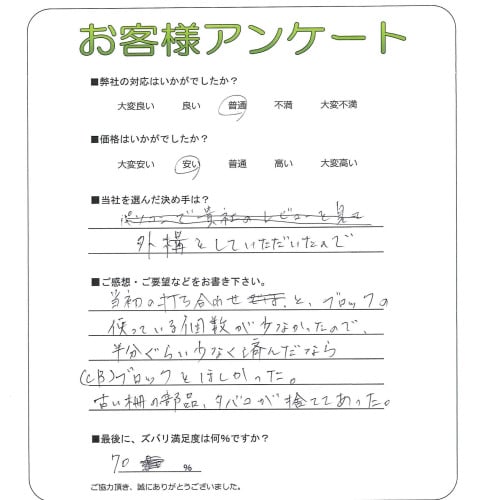 お客様アンケート
■弊社の対応はいかがでしたか？
大変良い 良い 普通 不満 大変不満
■価格はいかがでしたか？
大変安い 安い 普通 高い 大変高い
■当社を選んだ決め手は？
パソコンで貴社のレビューを見て
外構をしていただいたので
■ご感想・ご要望などをお書き下さい。
当初の打ち合わせ と、ブロックの
使っている個数が少なかったので、
半分ぐらい少なく済んだなら
(CB)ブロックとほしかった。
古い柵の部品、タバコが捨ててあった。
■最後に、ズバリ満足度は何％ですか？
70 %
ご協力頂き、誠にありがとうございました。